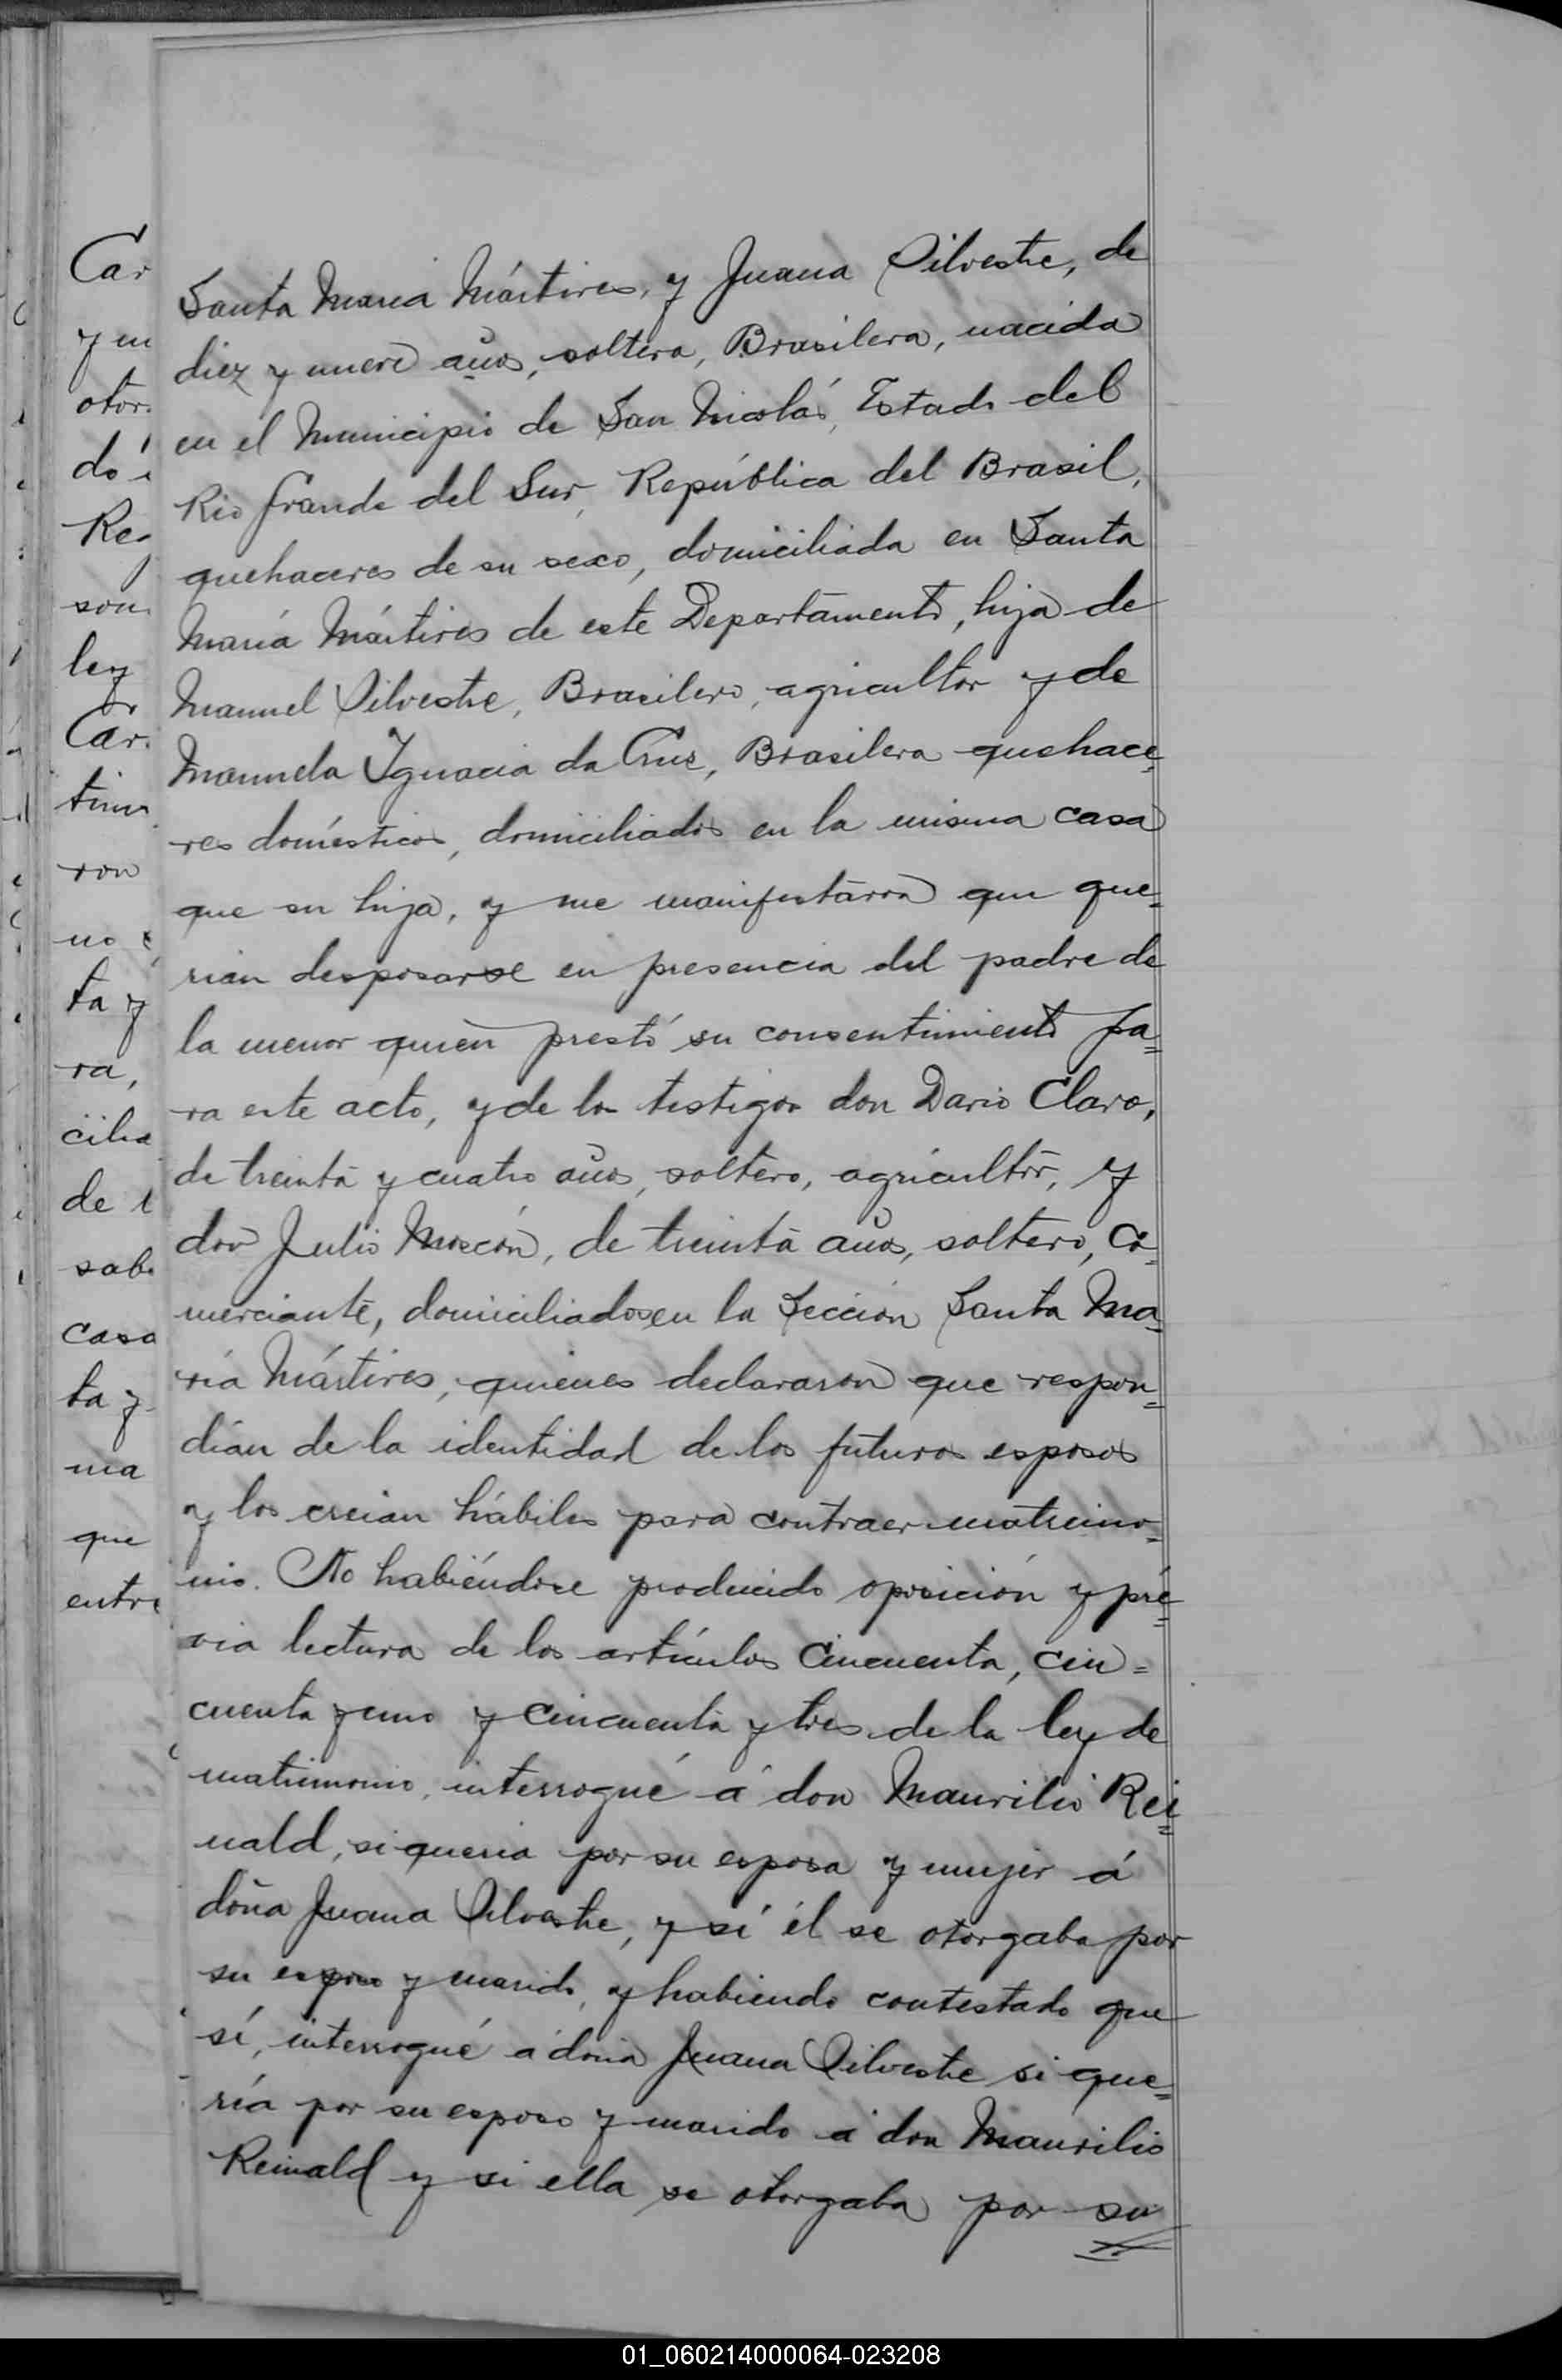 Car
y en
otor
dó
Re
son
ley
Car
tim
ron
no
ta y
ra,
cilia
de
sab
casa
ta y
ma
que
entre
Santa María Mártires, y Juana Silvestre, de
diez y nueve años, soltera, Brasilera, nacida
en el Municipio de San Nicolás, Estado del
Rio Grande del Sur, República del Brasil,
quehaceres de su sexo, domiciliada en Santa
María Mártires de este Departamento, hija de
Manuel Silvestre, Brasilero, agricultor y de
Manuela Ignacia da Cruz, Brasilera quehace-
res domésticos, domiciliados en la misma casa
que su hija, y me manifestaron que que=
rían desposarse en presencia del padre de
la menor quien prestó su consentimiento pa=
ra este acto, y de los testigos don Dario Claro,
de treinta y cuatro años, soltero, agricultor, y
don Julio, de treinta años, soltero, co=
merciante, domiciliados en la Sección Santa Ma=
ría Mártires, quienes declararon que respon=
dían de la identidad de los futuros esposos
y los creían hábiles para contraer matrimo=
nio. No habiéndose producido oposición y pré=
via lectura de los artículos cincuenta, cin=
cuenta y uno y cincuenta y tres de la ley de
matrimonio, interrogué á don Maurilio Rei=
nald, si queria por su esposa y mujer á
doña Juana Silvestre, y sí él se otorgaba por
su esposo y marido, y habiendo contestado que
sí, interrogué á doña Juana Silvestre si que=
ría por su esposo y marido á don Maurilio
Reinald y si ella se otorgaba por su
01_060214000064-023208